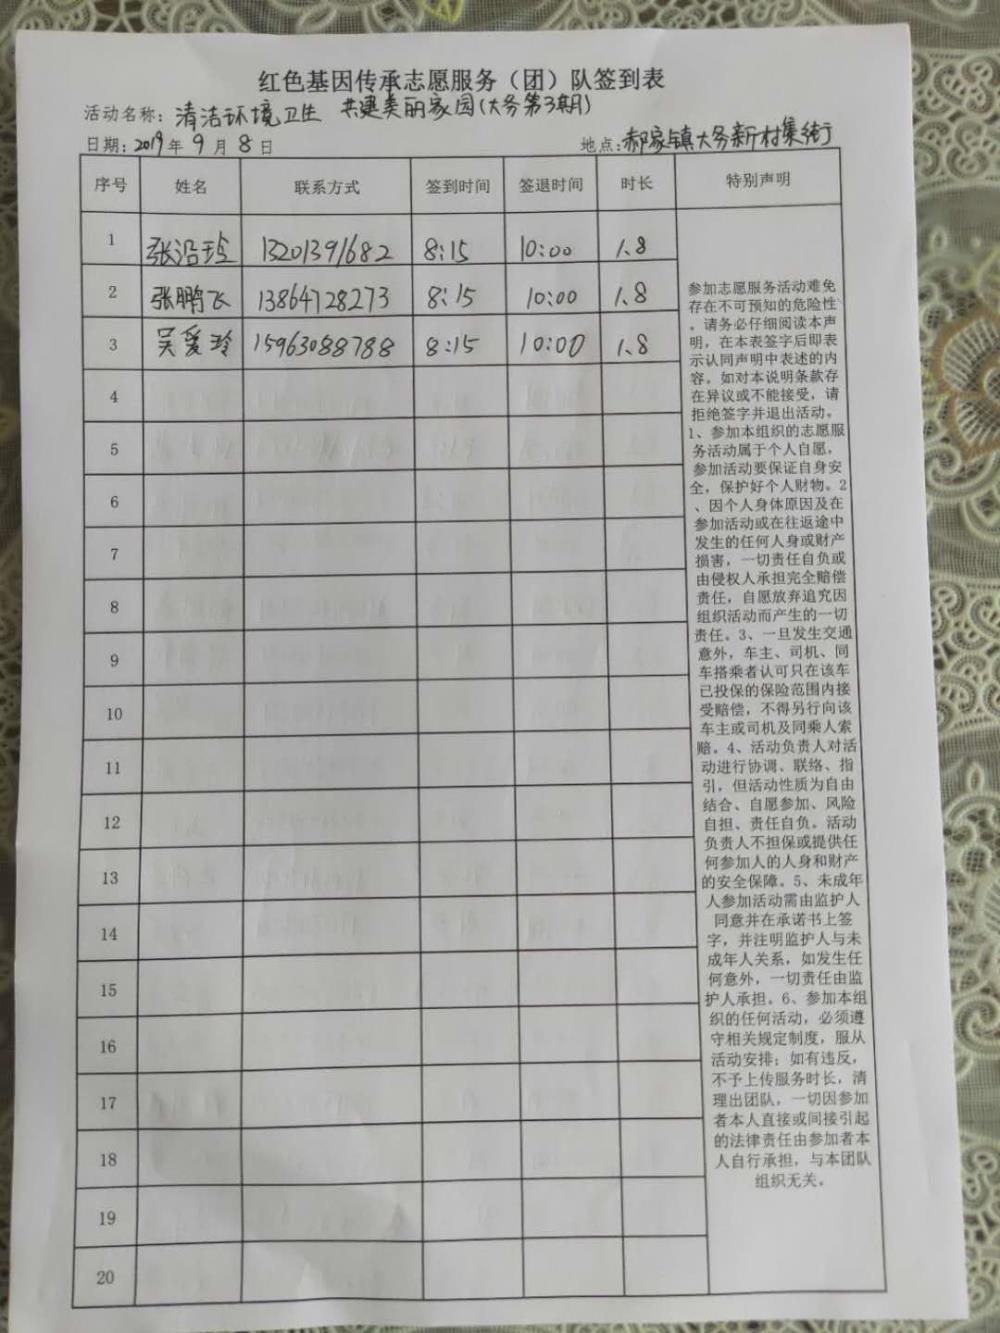 红色基因传承志愿服务（团）队签到表
活动名称：清洁环境卫生 共建美丽家园(大务第3期)
日期：2019年9月8日 地点：郝家镇大务新村集街
序号 姓名 联系方式 签到时间 签退时间 时长 特别声明
1 张沿 13201391682 8:15 10:00 1.8
2 张鹏飞 13864728273 8:15 10:00 1.8
3 吴爱玲 15963088788 8:15 10:00 1.8
4
5
6
7
8
9
10
11
12
13
14
15
16
17
18
19
20
参加志愿服务活动难免
存在不可预知的危险性
。请务必仔细阅读本声
明，在本表签字后即表
示认同声明中表述的内
容。如对本说明条款存
在异议或不能接受，请
拒绝签字并退出活动。
1、参加本组织的志愿服
务活动属于个人自愿，
参加活动要保证自身安
全，保护好个人财物。2
、因个人身体原因及在
参加活动或在往返途中
发生的任何人身或财产
损害，一切责任自负或
由侵权人承担完全赔偿
责任，自愿放弃追究因
组织活动而产生的一切
责任。3、一旦发生交通
意外，车主、司机、同
车搭乘者认可只在该车
已投保的保险范围内接
受赔偿，不得另行向该
车主或司机及同乘人索
赔。4、活动负责人对活
动进行协调、联络、指
引，但活动性质为自由
结合、自愿参加、风险
自担、责任自负。活动
负责人不担保或提供任
何参加人的人身和财产
的安全保障。5、未成年
人参加活动需由监护人
同意并在承诺书上签
字，并注明监护人与未
成年人关系，如发生任
何意外，一切责任由监
护人承担。6、参加本组
织的任何活动，必须遵
守相关规定制度，服从
活动安排；如有违反，
不予上传服务时长，清
理出团队，一切因参加
者本人直接或间接引起
的法律责任由参加者本
人自行承担，与本团队
组织无关。